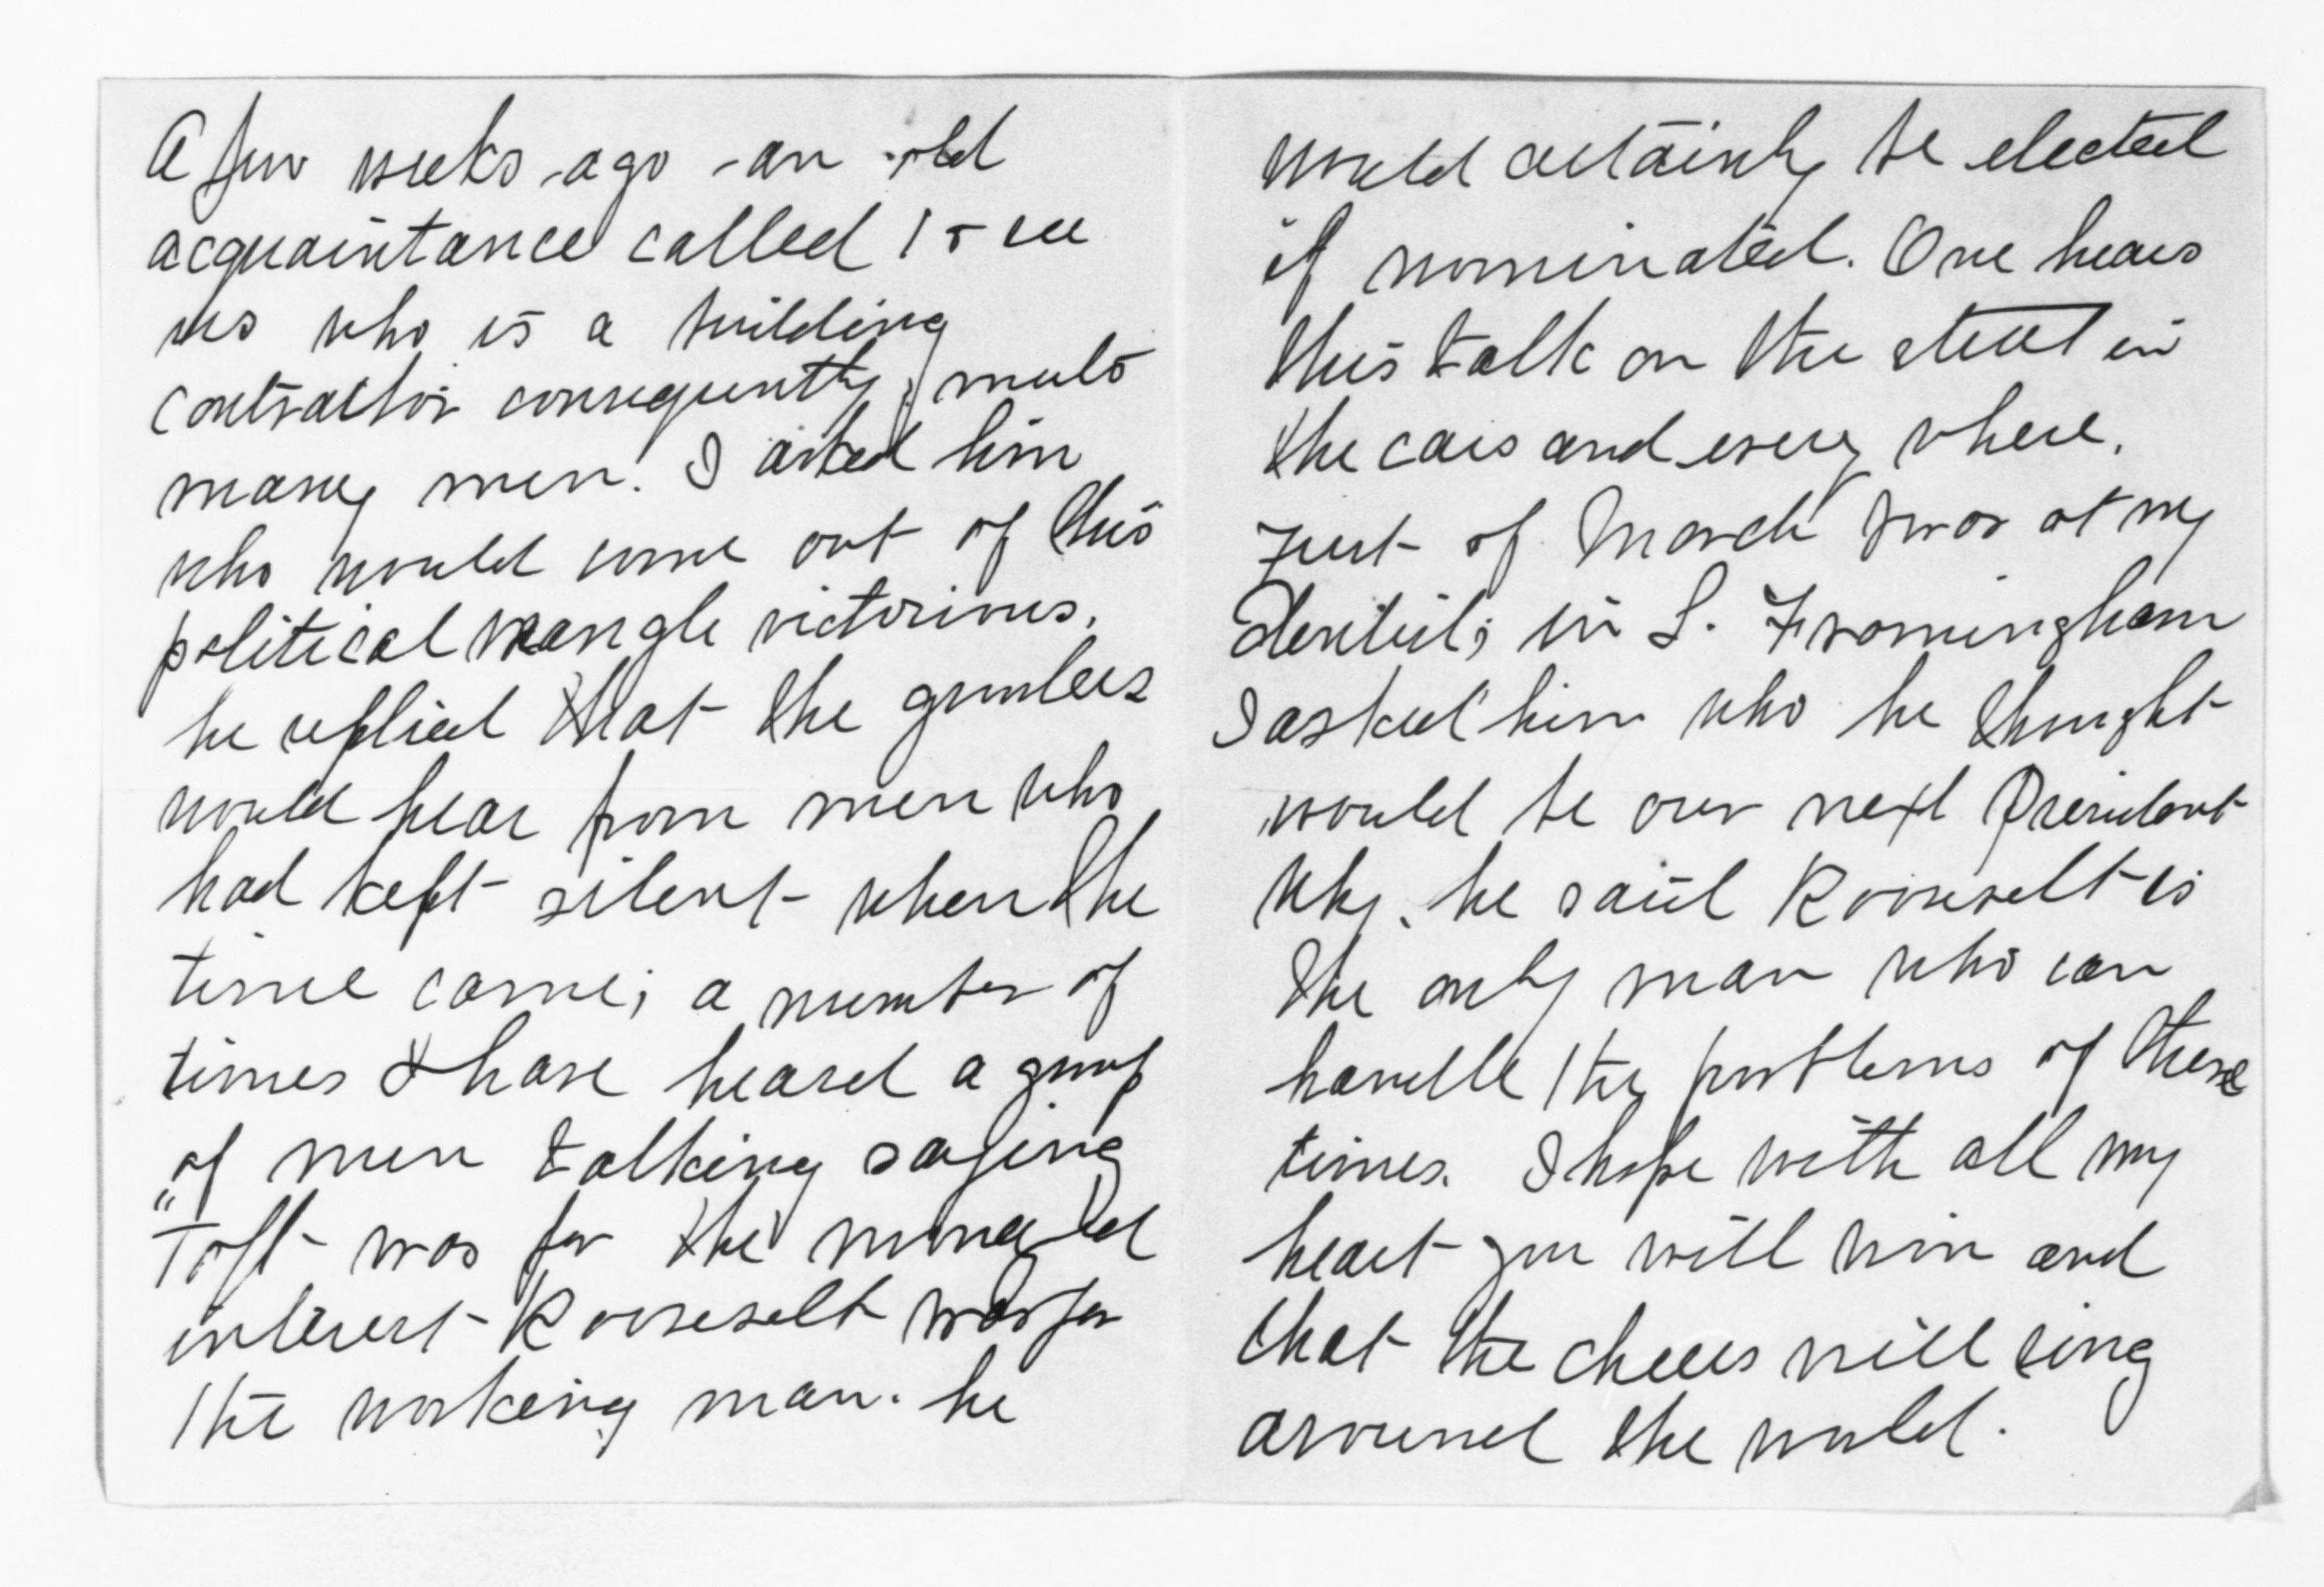 A few weeks ago an old
acquaintance called to see
us who is a building
contractor consequently, meets
many men. I asked him
who would come out of this
political wrangle victorious,
he replied that the grumblers
would hear from men who
had kept silent when the
time came; a number of
times I have heard a group
of men talking saying
"Taft was for the moneyed
interest Roosevelt was for
the working man. he
would certainly be elected
if nominated. One hears
this talk on the street in
the cars and every where.
First of March I was at my
dentist, in S. Framingham
I asked him who he thought
would be our next President
Why, he said Roosevelt is
the only man who can
handle the problems of these
times. I hope with all my
heart you will win and
that the cheers will ring
around the world.